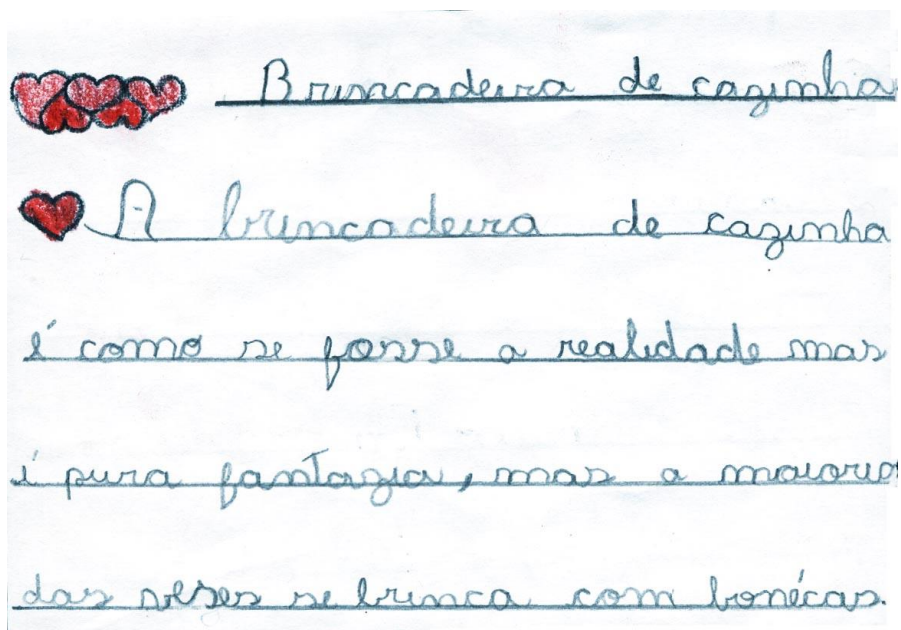 Brincadeira de cazinha
A brincadeira de cazinha
é como se fosse a realidade mas
é pura fantazia, mas a maioria
das veses se brinca com bonécas.